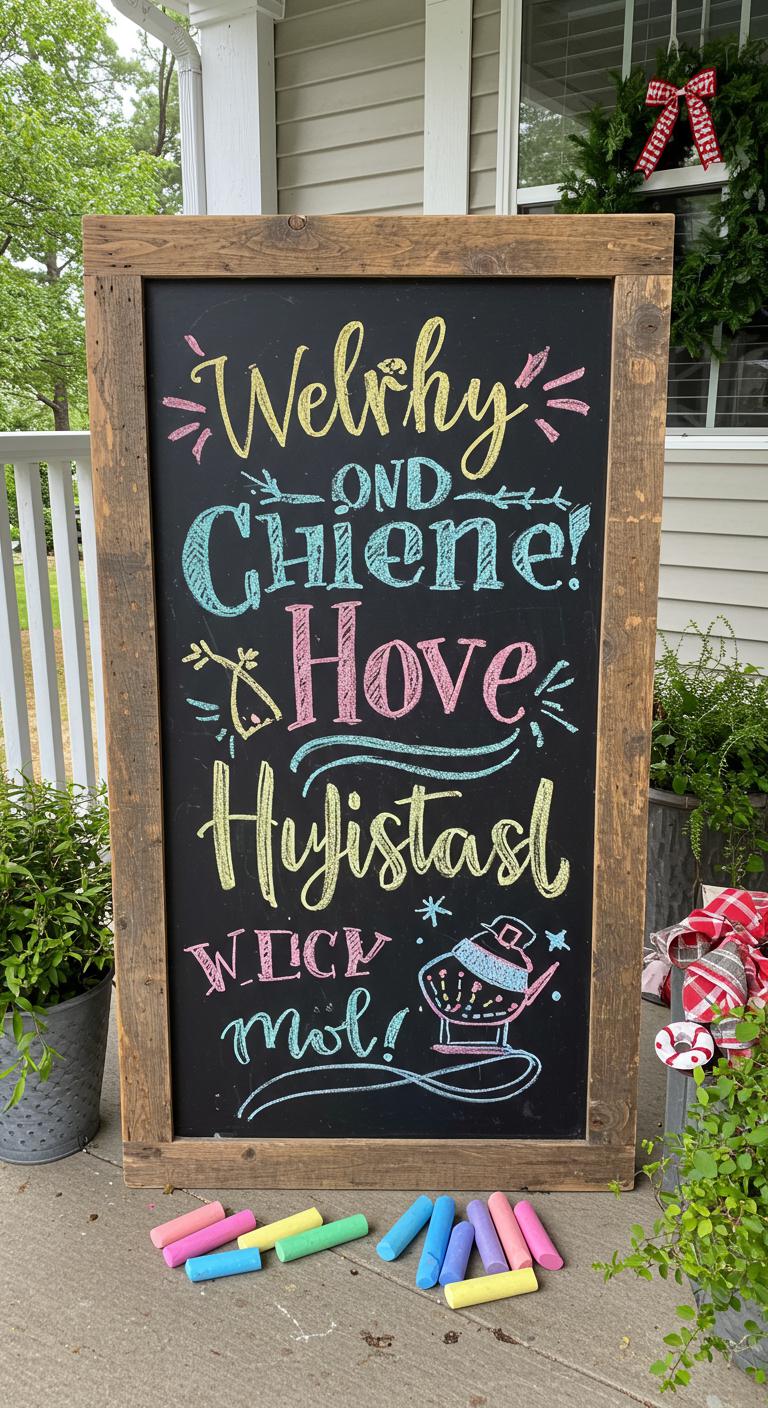 Welrhy
OND
Chiene!
Hove
Hyjistasl
W.ECY
mol!